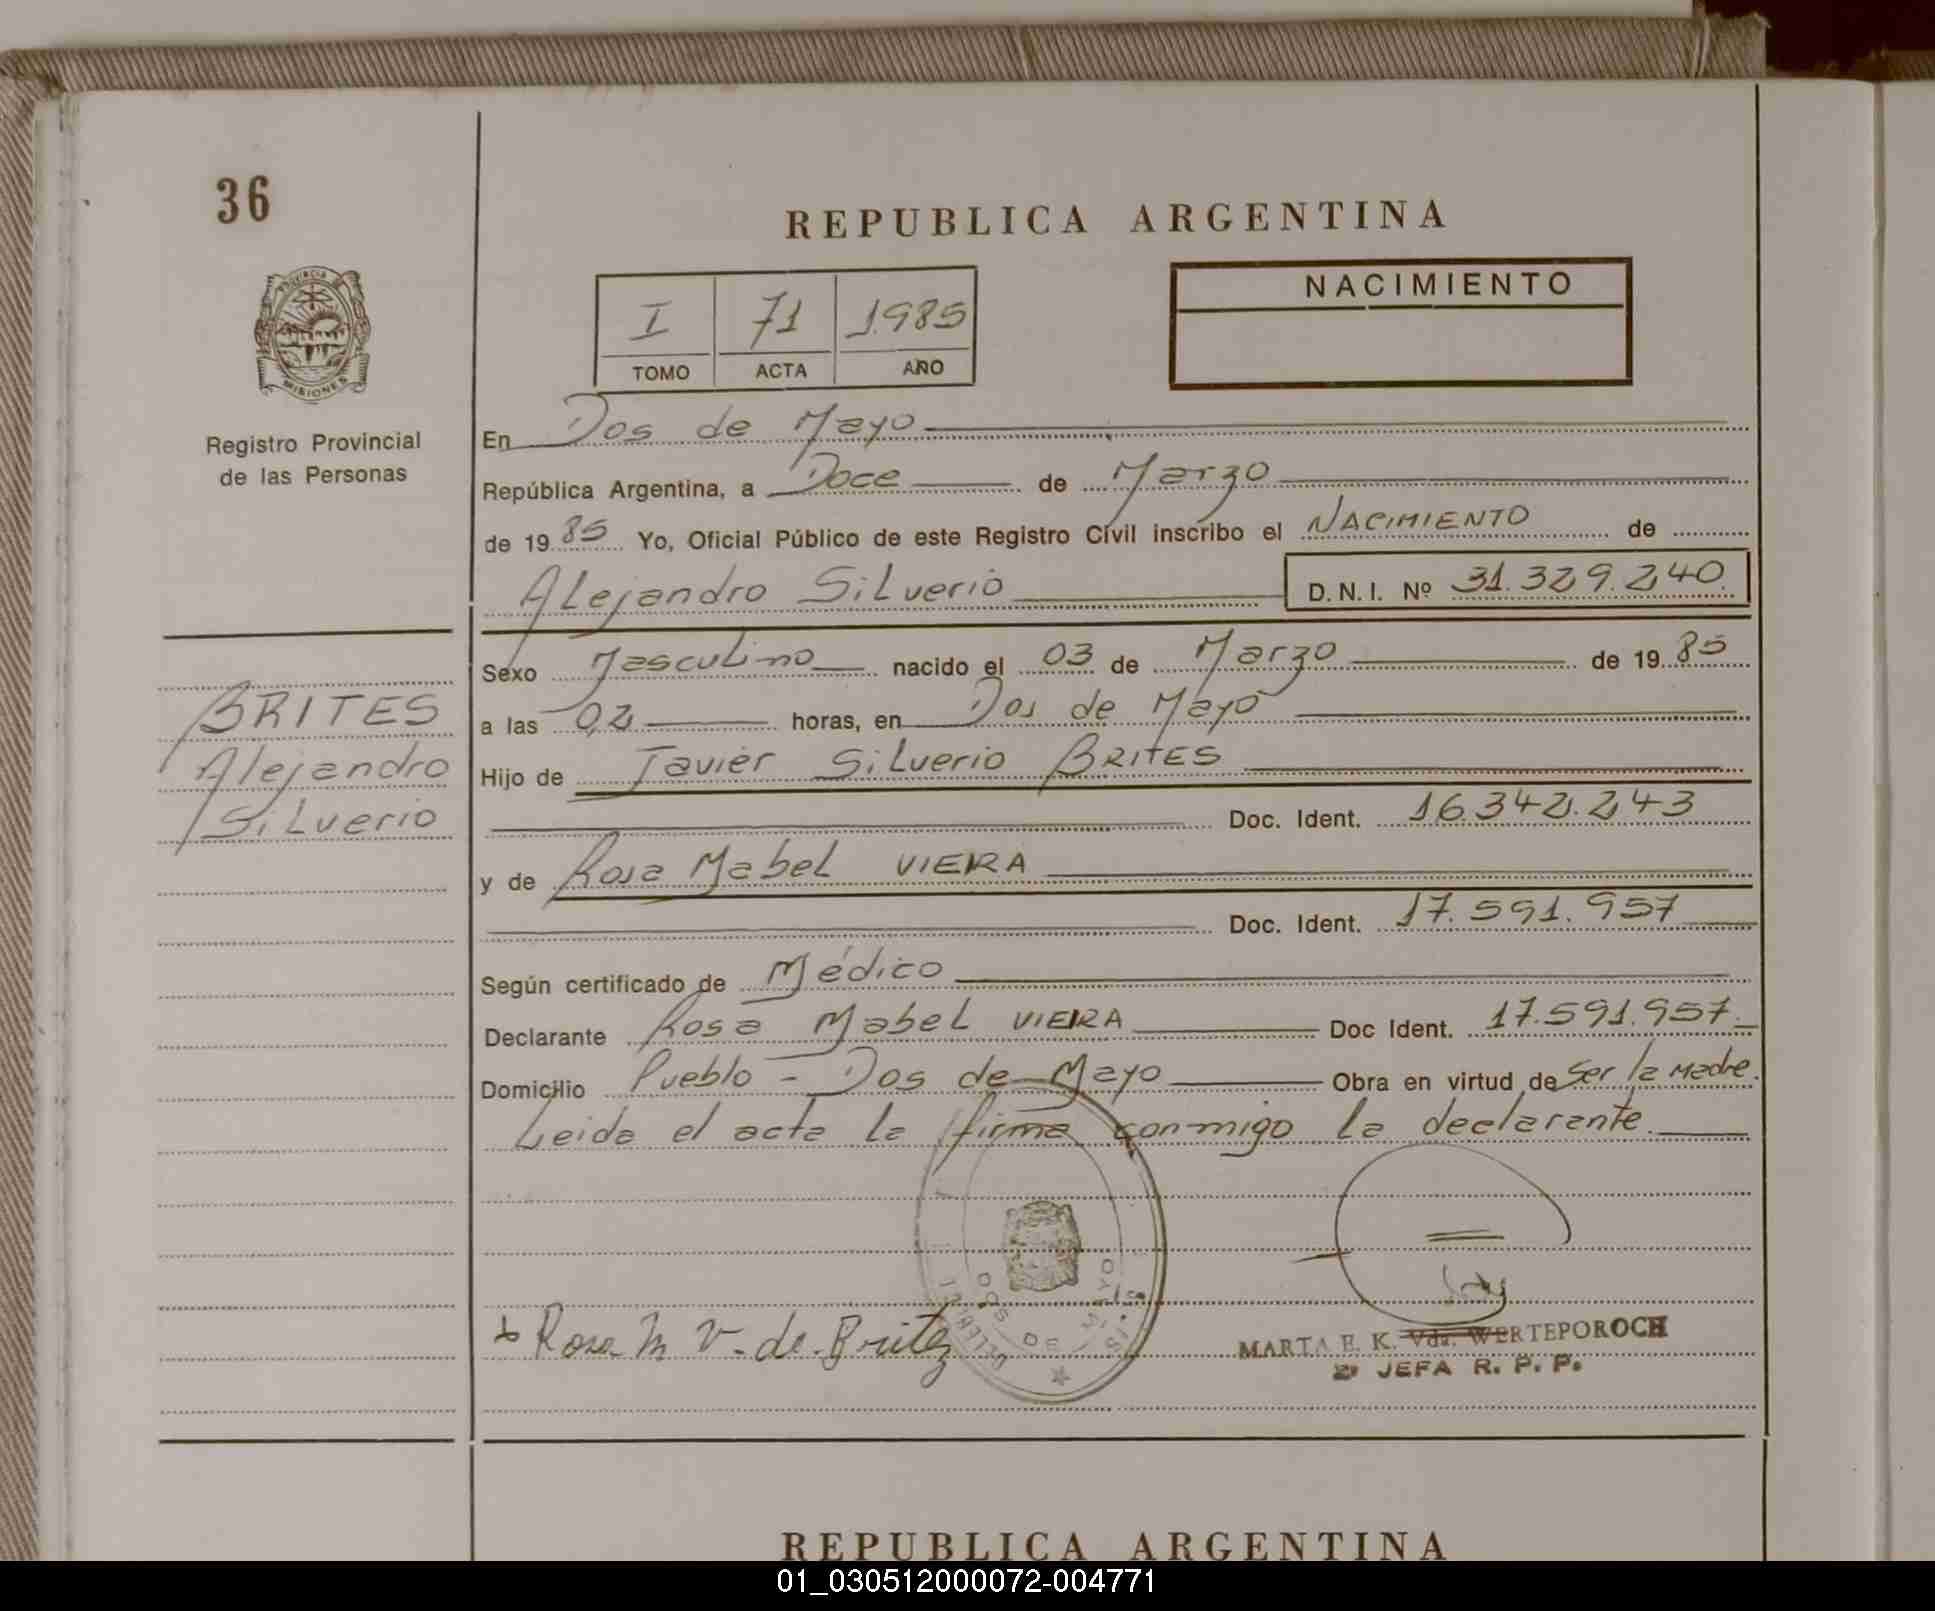 36
REPUBLICA ARGENTINA
PROVINCIA
MISIONES
Registro Provincial
de las Personas
I 71 1985
TOMO ACTA AÑO
NACIMIENTO
En Dos de Mayo
República Argentina, a Doce de Marzo
de 1985 Yo, Oficial Público de este Registro Civil inscribo el NACIMIENTO de
Alejandro Silverio D.N.I. Nº 31.329.240
BRITES
Alejandro
Silverio
Sexo Masculino nacido el 03 de Marzo de 1985
a las 02 horas, en Dos de Mayo
Hijo de Javier Silverio BRITES
Doc. Ident. 16.342.243
y de Rosa Mabel VIEIRA
Doc. Ident. 17.591.957
Según certificado de Médico
Declarante Rosa Mabel VIEIRA Doc Ident. 17.591.957
Domicilio Pueblo - Dos de Mayo Obra en virtud de Ser la Madre.
Leida el acta la firma conmigo la declarante.
Rosa M V. de Britez
DOS DE MAYO
MARTA E. K. Vda. WERTEPOROCH
JEFA R. P. P.
REPUBLICA ARGENTINA
01_030512000072-004771